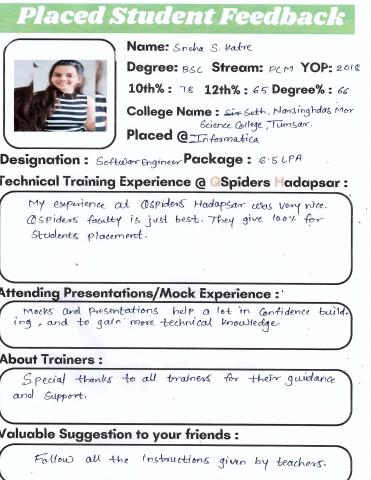 Placed Student Feedback
Name: Sneha S. Katre
Degree: BSC Stream: PCM YOP: 2018
10th% : 78 12th% : 65 Degree% : 66
College Name : Seth. Narsinghdas Mor
Science College, Tumsar.
Placed @ Informatica
Designation : Software Engineer Package : 6.5 LPA
Technical Training Experience @ QSpiders Hadapsar :
My experience at QSpiders Hadapsar was very nice.
QSpiders faculty is just best. They give 100% for
Students placement.
Attending Presentations/Mock Experience :
Mocks and Presentations help a lot in Confidence build-
ing, and to gain more technical knowledge
About Trainers :
Special thanks to all trainers for their guidance
and Support.
Valuable Suggestion to your friends :
Follow all the instructions given by teachers.